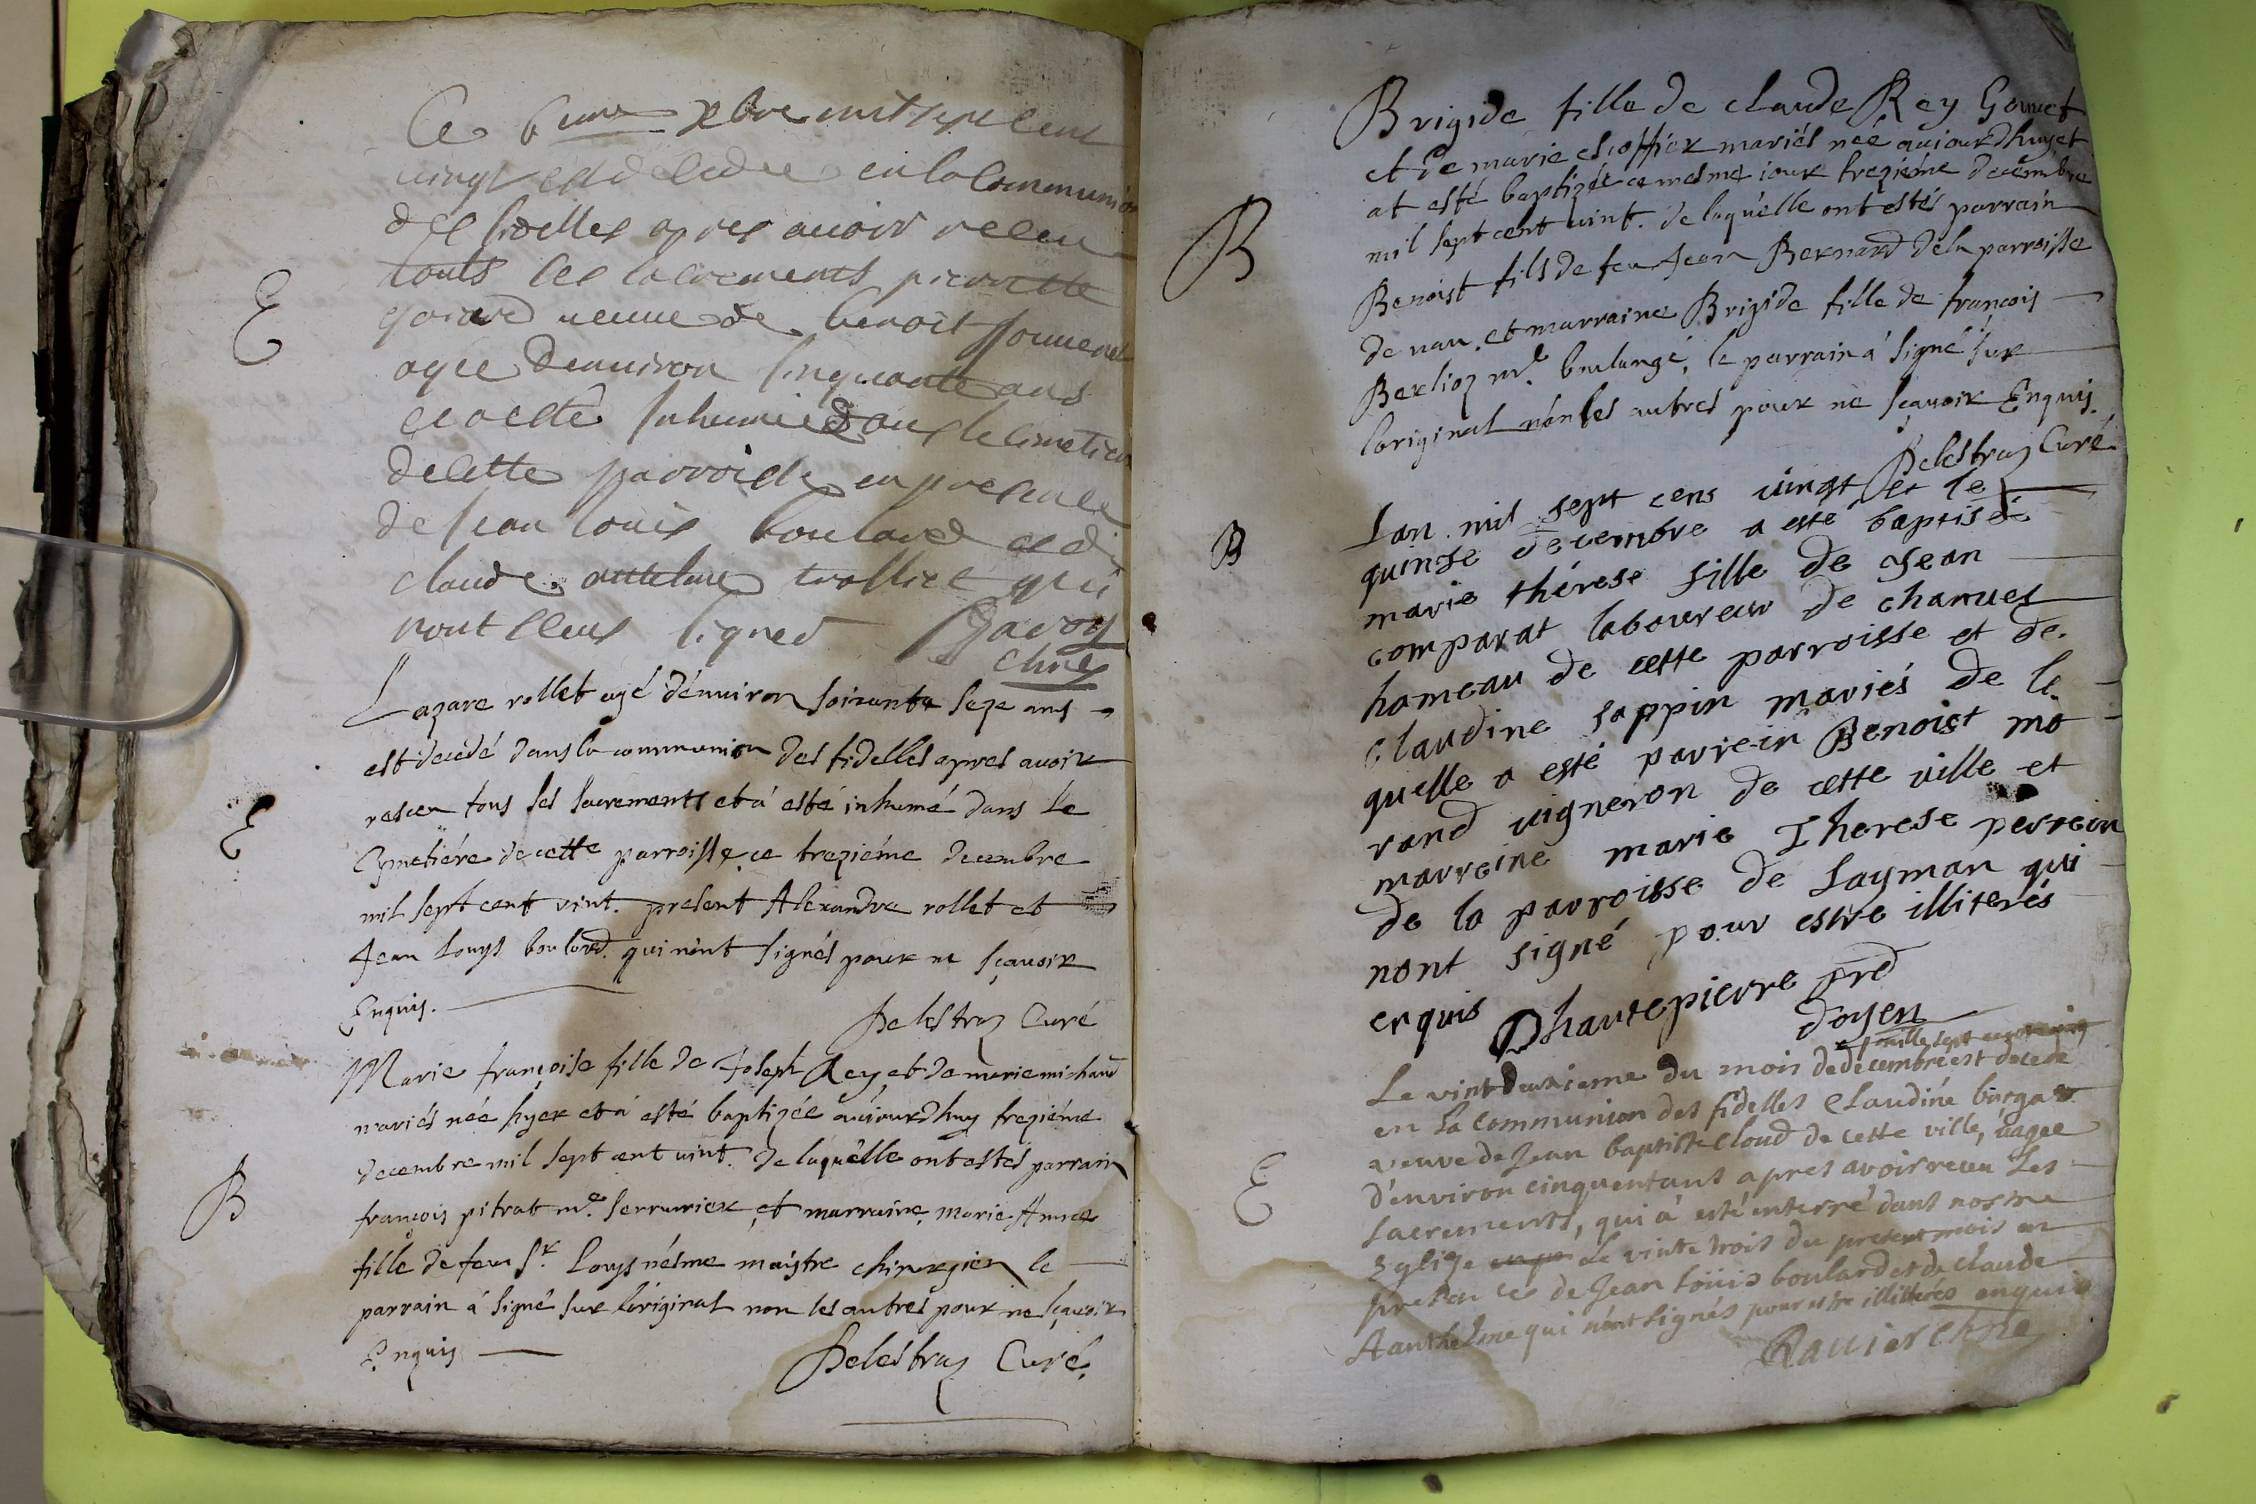 Ce 6 xbre mil sept cent
vingt est decedee en la Communion
des fidelles apres avoir receu
touts les sacrements pierrette
veuve de benoit
agée denviron cinquante ans
et a esté Inhumée dans le cimetiere
de cette parroisse en presence
de Jean louis boulard et de
claude antelme trolliet qui
nont sceus signer Savoy
chne
E
Lazare rollet agé d'enuiron soixante seze ans
est decedé dans la communion des fidelles apres auoir
receu tous ses sacrements et à esté inhumé dans le
Cymetiére de cette parroisse ce treziéme decembre
mil sept cent vint. present Alexandre rollet et
Jean Louys boulard. qui n'ont signés pour ne sçauoir
Enquis.
Delestraz Curé
E
Marie françoise fille de Joseph Rey et de marie michaud
mariés née hyer et à esté baptizée auiourdhuy treziéme
decembre mil sept cent uint. de laquélle ont estés parrain
françois pitrat me. serrurier et marraine, marie Anne
fille de feu Sr. Louys nésme maistre chirurgien le
parrain à signé sur lóriginal non les autres pour ne sçauoir
Enquis
Delestraz Curé.
B
Brigide fille de claude Rey Gouuet
et de marie escoffier mariés née auiourdhuy et
at esté baptizée ce mesme iour treziéme decembre
mil sept cent uint. de laquélle ont estés parrain
Benoist fils de feu Jean Bernard de la parroisse
de nau. et marraine Brigide fille de françois
Berlioz me. boulangé, le parrain à signé sur
loriginal non les autres pour ne sçauoir Enquis.
Delestraz Curé
B
Lan mil sept cens uingt et le
quinse decembre a esté baptisé
marie thérese fille de Jean
comparat laboureur de charues
hameau de cette parroisse et de
claudine sappin mariés de la
quelle a esté parrein Benoist mo
rand uigneron de cette uille et
marreine marie Therese perrein
de la parroisse de Layman qui
nont signé pour estre illiterés
enquis Dhautepierre prd
doyen
B
mille sept cent vingt
Le vint deuxieme du mois de decembre est decede
en La communion des fidelles Claudine
veuve de Jean baptiste cloud de cette ville, aagee
d'environ cinquantans apres avoir receu Les
sacrements, qui à esté enterré dans nostre
Eglise Le vintetrois du present mois en
presences de Jean Loüis boulard et de claude
Aanthelme qui nont signés pour estre illiteres enquis
Ravier chne
E